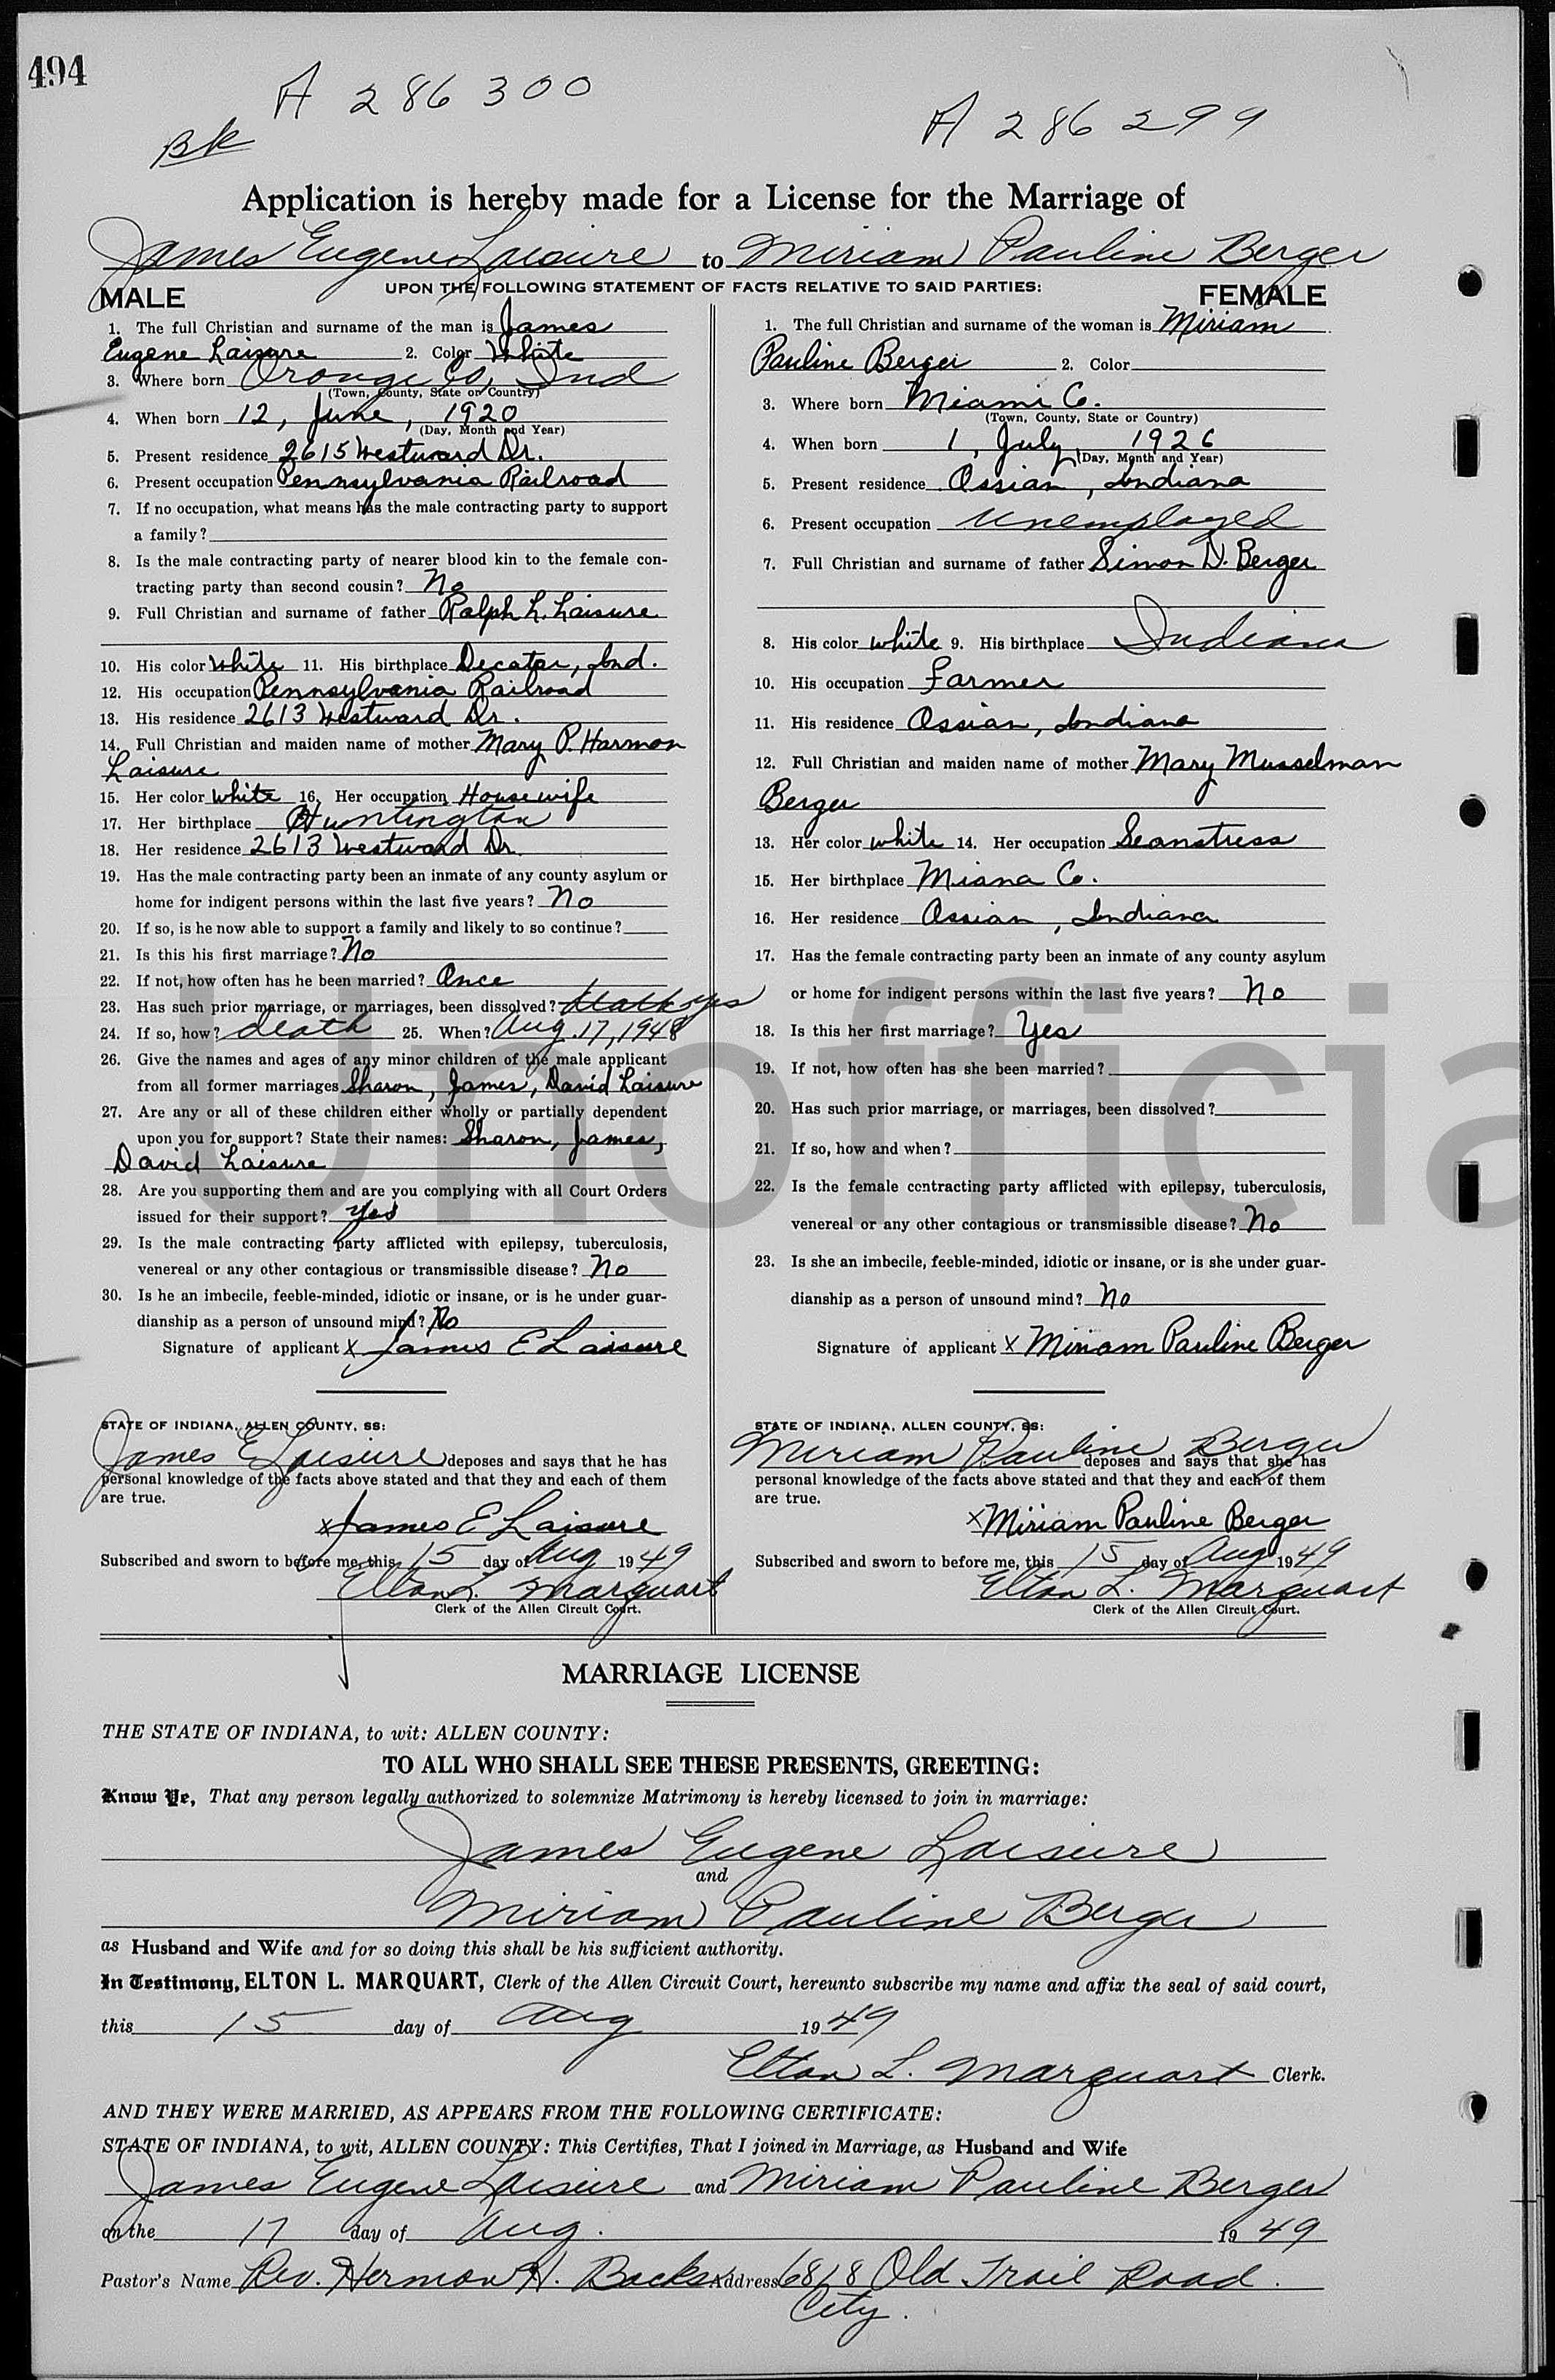 494
A 286 300
A 286 299
BK
Application is hereby made for a License for the Marriage of
James Eugene Laisure to Miriam Pauline Berger
UPON THE FOLLOWING STATEMENT OF FACTS RELATIVE TO SAID PARTIES:
MALE
1. The full Christian and surname of the man is James
Eugene Laisure 2. Color White
3. Where born Orange Co, Ind
(Town, County, State or Country)
4. When born 12, June, 1920
(Day, Month and Year)
5. Present residence 2615 Westward Dr.
6. Present occupation Pennsylvania Railroad
7. If no occupation, what means has the male contracting party to support
a family?
8. Is the male contracting party of nearer blood kin to the female con-
tracting party than second cousin? No
9. Full Christian and surname of father Ralph L. Laisure
10. His color White 11. His birthplace Decator, Ind.
12. His occupation Pennsylvania Railroad
13. His residence 2613 Westward Dr.
14. Full Christian and maiden name of mother Mary P. Harmon
Laisure
15. Her color White 16. Her occupation Housewife
17. Her birthplace Huntington
18. Her residence 2613 Westward Dr.
19. Has the male contracting party been an inmate of any county asylum or
home for indigent persons within the last five years? No
20. If so, is he now able to support a family and likely to so continue?
21. Is this his first marriage? No
22. If not, how often has he been married? Once
23. Has such prior marriage, or marriages, been dissolved? Death yes
24. If so, how? death 25. When? Aug. 17, 1948
26. Give the names and ages of any minor children of the male applicant
from all former marriages Sharon, James, David Laisure
27. Are any or all of these children either wholly or partially dependent
upon you for support? State their names: Sharon, James,
David Laisure
28. Are you supporting them and are you complying with all Court Orders
issued for their support? Yes
29. Is the male contracting party afflicted with epilepsy, tuberculosis,
venereal or any other contagious or transmissible disease? No
30. Is he an imbecile, feeble-minded, idiotic or insane, or is he under guar-
dianship as a person of unsound mind? No
Signature of applicant x James E Laisure
STATE OF INDIANA, ALLEN COUNTY, SS:
James E Laisure deposes and says that he has
personal knowledge of the facts above stated and that they and each of them
are true.
x James E Laisure
Subscribed and sworn to before me, this 15 day of Aug 1949
Elton L. Marquart
Clerk of the Allen Circuit Court.
FEMALE
1. The full Christian and surname of the woman is Miriam
Pauline Berger 2. Color
3. Where born Miami Co.
(Town, County, State or Country)
4. When born 1, July, 1926
(Day, Month and Year)
5. Present residence Ossian, Indiana
6. Present occupation Unemployed
7. Full Christian and surname of father Simon D. Berger
8. His color white 9. His birthplace Indiana
10. His occupation Farmer
11. His residence Ossian, Indiana
12. Full Christian and maiden name of mother Mary Musselman
Berger
13. Her color white 14. Her occupation Seanstress
15. Her birthplace Miana Co.
16. Her residence Ossian, Indiana
17. Has the female contracting party been an inmate of any county asylum
or home for indigent persons within the last five years? No
18. Is this her first marriage? Yes
19. If not, how often has she been married?
20. Has such prior marriage, or marriages, been dissolved?
21. If so, how and when?
22. Is the female contracting party afflicted with epilepsy, tuberculosis,
venereal or any other contagious or transmissible disease? No
23. Is she an imbecile, feeble-minded, idiotic or insane, or is she under guar-
dianship as a person of unsound mind? No
Signature of applicant x Miriam Pauline Berger
STATE OF INDIANA, ALLEN COUNTY, SS:
Miriam Pauline Berger deposes and says that she has
personal knowledge of the facts above stated and that they and each of them
are true.
x Miriam Pauline Berger
Subscribed and sworn to before me, this 15 day of Aug 1949
Elton L. Marquart
Clerk of the Allen Circuit Court.
Unofficia
MARRIAGE LICENSE
THE STATE OF INDIANA, to wit: ALLEN COUNTY:
TO ALL WHO SHALL SEE THESE PRESENTS, GREETING:
Know Ye, That any person legally authorized to solemnize Matrimony is hereby licensed to join in marriage:
James Eugene Laisure
and
Miriam Pauline Berger
as Husband and Wife and for so doing this shall be his sufficient authority.
In Testimony, ELTON L. MARQUART, Clerk of the Allen Circuit Court, hereunto subscribe my name and affix the seal of said court,
this 15 day of Aug 1949
Elton L. Marquart Clerk.
AND THEY WERE MARRIED, AS APPEARS FROM THE FOLLOWING CERTIFICATE:
STATE OF INDIANA, to wit, ALLEN COUNTY: This Certifies, That I joined in Marriage, as Husband and Wife
James Eugene Laisure and Miriam Pauline Berger
on the 17 day of Aug. 1949
Pastor's Name Rev. Herman H. Backs Address 6818 Old Trail Road.
City.